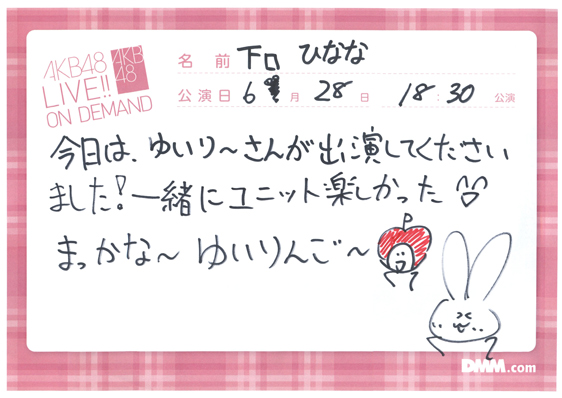 AKB48
LIVE!!
ON DEMAND
AKB
48
名前 下口 ひなな
公演日 6月 28日 18:30 公演
今日は、ゆいり〜さんが出演してください
ました!一緒にユニット楽しかった
まっかな〜 ゆいりんご〜
DMM.com